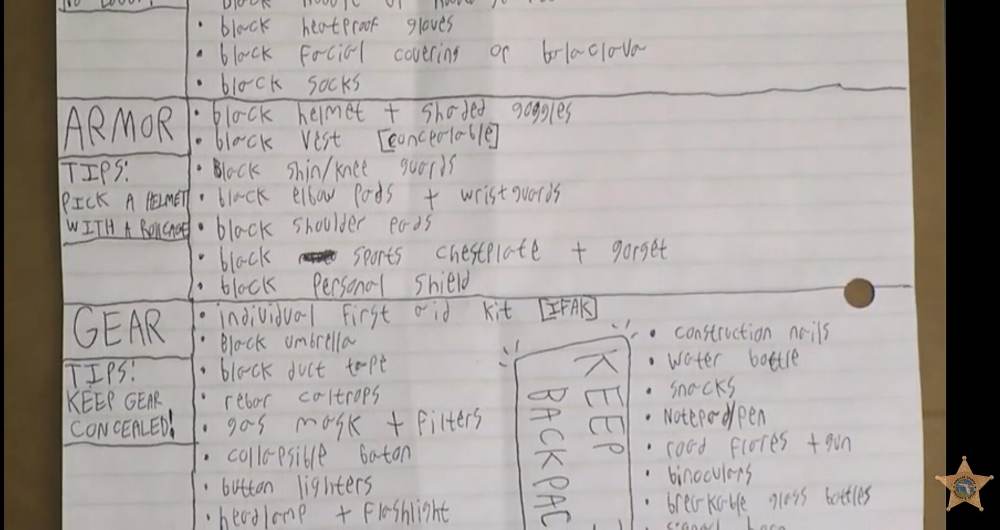 black heatproof gloves
• black facial covering or balaclava
• black socks
ARMOR
TIPS:
PICK A HELMET
WITH A ROLLCAGE
• black helmet + shaded goggles
• black vest [concealable]
• Black shin/knee guards
• black elbow pads + wristguards
• black shoulder pads
• black sports chestplate + gorget
• black personal shield
GEAR
TIPS:
KEEP GEAR
CONCEALED!
• individual first aid kit [IFAK]
• Black umbrella
• black duct tape
• rebar caltrops
• gas mask + filters
• collapsible baton
• button lighters
• headlamp + flashlight
KEEP
BACKPAC
• construction nails
• water bottle
• snacks
• Notepad/pen
• road flares + gun
• binoculars
• breakable glass bottles